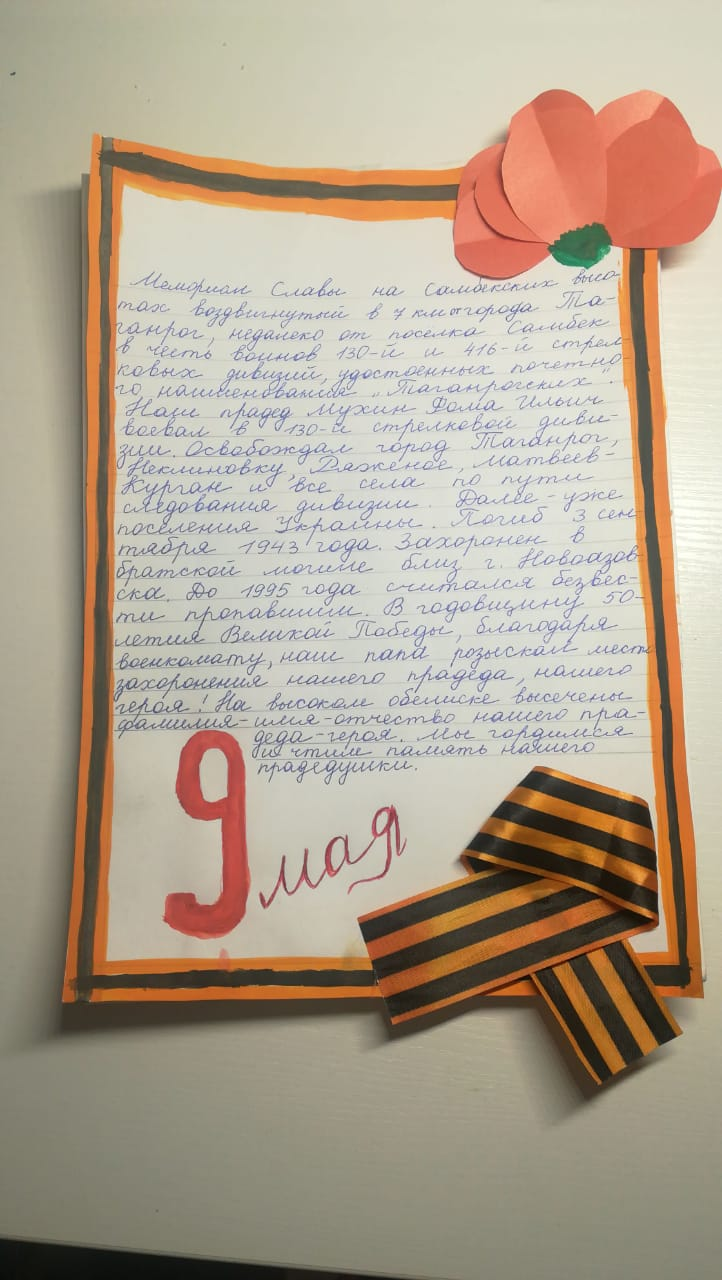 Мемориал Славы на Самбекских высо-
тах воздвигнутый в 7 км от города Та-
ганрог, недалеко от поселка Самбек
в честь воинов 130-й и 416-й стрел-
ковых дивизий, удостоенных почетно-
го наименования „Таганрогских".
Наш прадед Мухин Фома Ильич
воевал в 130-й стрелковой диви-
зии. Освобождал город Таганрог,
Неклиновку, Ряженое, Матвеев-
Курган и все села по пути
следования дивизии. Далее - уже
поселения Украины. Погиб 3 сен-
тября 1943 года. Захоронен в
братской могиле близ г. Новоазов-
ска. До 1995 года считался безвес-
ти пропавшим. В годовщину 50-
летия Великой Победы, благодаря
военкомату, наш папа розыскал место
захоронения нашего прадеда, нашего
героя! На высоком обелиске высечены
фамилия-имя-отчество нашего пра-
деда-героя. Мы гордимся
и чтим память нашего
прадедушки.
9 мая